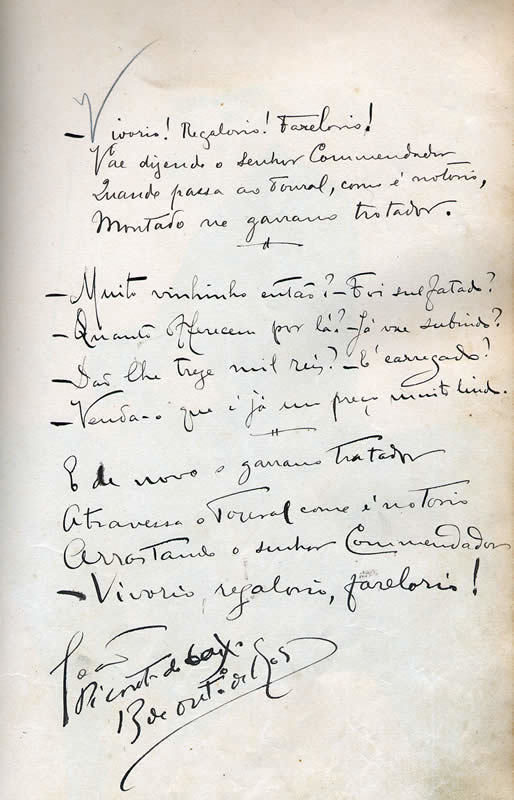 – Vivorio! Regalorio! Farelorio!
Vae dizendo o senhor Commendador
Quando passa ao Toural, como é notorio,
Montado no garrano trotador.
– Muito vinhinho então? – Foi sulfatado?
– Quanto offerecem por lá? – Já vae subindo?
– Dão lhe treze mil réis? – E' carregado?
– Venda-o que é já um preço muito lindo.
E de novo o garrano trotador
Atravessa o Toural como é notorio
Arrastando o senhor Commendador
– Vivorio, regalorio, farelorio!
João
13 de de